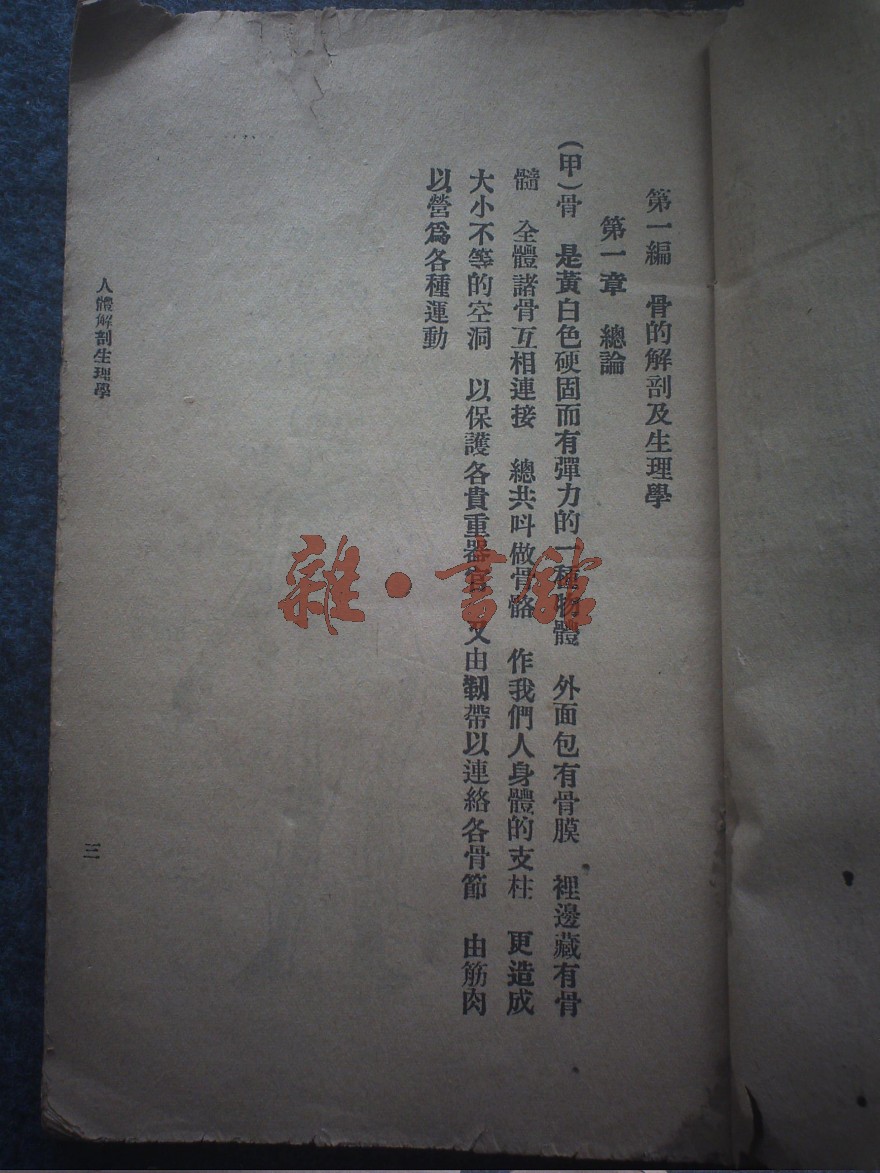 第一編　骨的解剖及生理學
第一章　總論
（甲）骨　是黃白色硬固而有彈力的一種物體　外面包有骨膜　裡邊藏有骨
髓　全體諸骨互相連接　總共呌做骨骼　作我們人身體的支柱　更造成
大小不等的空洞　以保護各貴重器官　又由韌帶以連絡各骨節　由筋肉
以營爲各種運動
人體解剖生理學
三
雜·書館